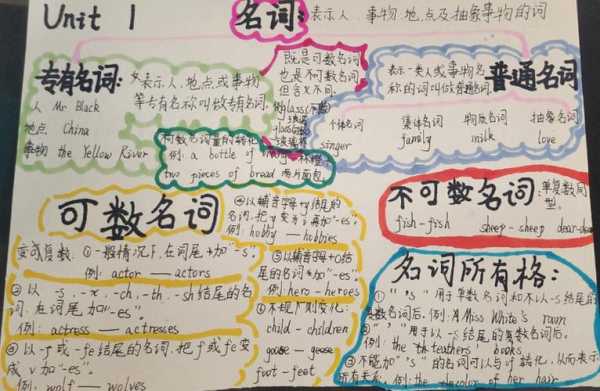 Unit 1
名词:表示人、事物、地点及抽象事物的词
专有名词:
表示人、地点或事物
等专有名称叫做专有名词.
人 Mr Black
地点 China
事物 the Yellow River
既是可数名词
也是不可数名词
但含义不同.
普通名词
表示一类人或事物名
称的词叫做普通名词
个体名词
singer
集体名词
family
物质名词
milk
抽象名词
love
例: a bottle of
two pieces of bread 两片面包
可数名词
变成复数:①一般情况下,在词尾+加"-s".
例: actor — actors
②以-s,-x,-ch,-th,-sh结尾的名
词,在词尾加"-es".
例: actress — actresses
③以-f或-fe结尾的名词,把f或fe变
成v加"-es".
例: wolf — wolves
④以辅音字母+y结尾的
名词,把y变为i再加"-es".
例: hobby — hobbies
⑤以辅音字母+o结
尾的名词+加"-es".
例: hero - heroes
⑥不规则变化:
child - children
goose - geese
foot - feet
不可数名词:单复数同
型.
fish - fish sheep - sheep deer-deer
名词所有格:
①"'s"用于单数名词和不以-s结尾的
复数名词后.例: Miss White's room
②"'"用于以-s结尾的复数名词后.
例: the teachers' books
③不能加"'s"的名词可以与of结化,从而表示
所有关系. 例: the color of her hair